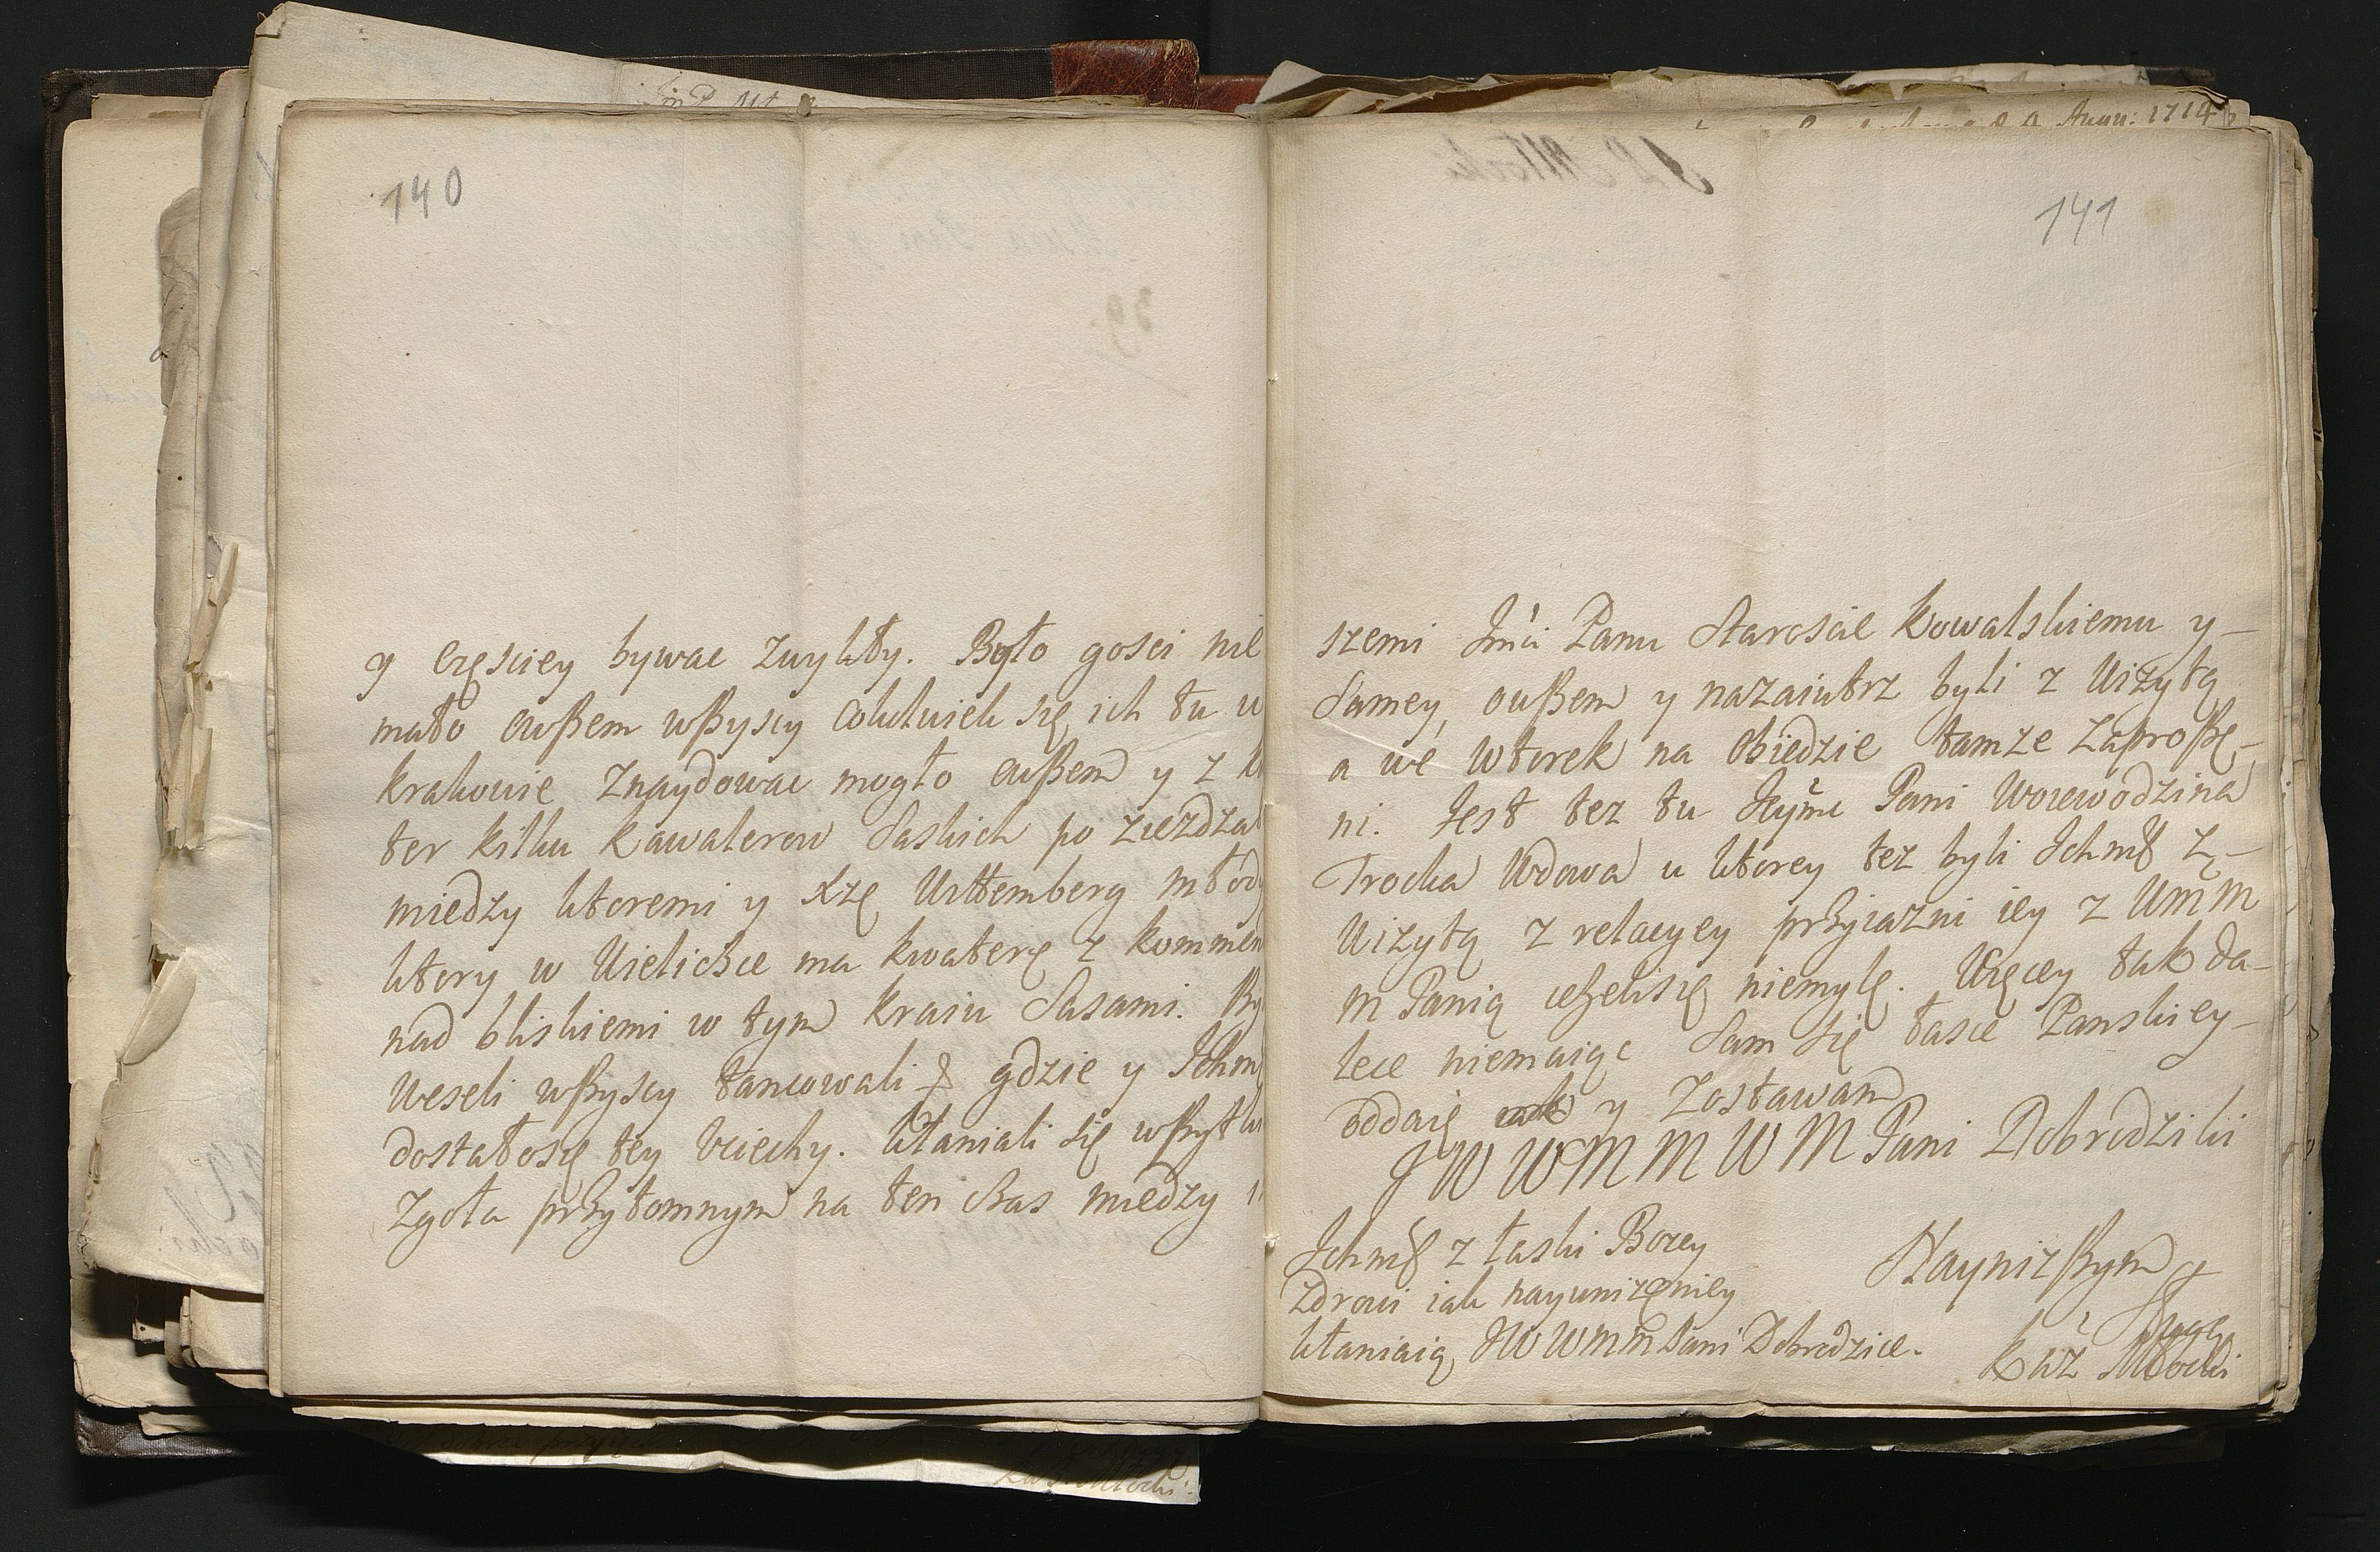 140
y częsciey bywac zwykły. Było gosci nie
mało owszem wszyscy colulwiek się ich tu w
krakowie znaydowac mogło owszem y z
ter kilku kawalerow Saskich po ziezdzał
miedzy ktoremi y Xzę Wirttemberg młody
ktory w Wieliczce ma kwaterę z kommen
nad bliskiemi w tym kraiu Sasami. By
weseli wszyscy tancowali gdzie y Ichm
dostałosię tey vciechy. kłaniali się wszytk
zgoła przytomnym na ten czas miedzy
Anun: 1714
141
szemi Jmci Panu Staroscie Kowalskiemu y
Samey, owszem y nazaiutrz byli z wizytą
a we wtorek na obiedzie tamze zaproszę
ni. Jest tez tu Jeymc Pani Woiewodzina
Trocka Wdowa u ktorey tez byli Ichmc z
wizytą z relacyey przyiazni iey z WMM
M Panią iezelisię niemylę. Więcey tak da
lece niemaiąc Sam się łasce Panskiey
oddaię y zostawam
JWWMMWM Pani Dobrodziki
Ichmc z łaski Bozey
zdrowi iak nayunizeniey
kłaniaią JWWMM Pani Dobrodzice.
Naynizszym
Sługą
Kaz Młocki